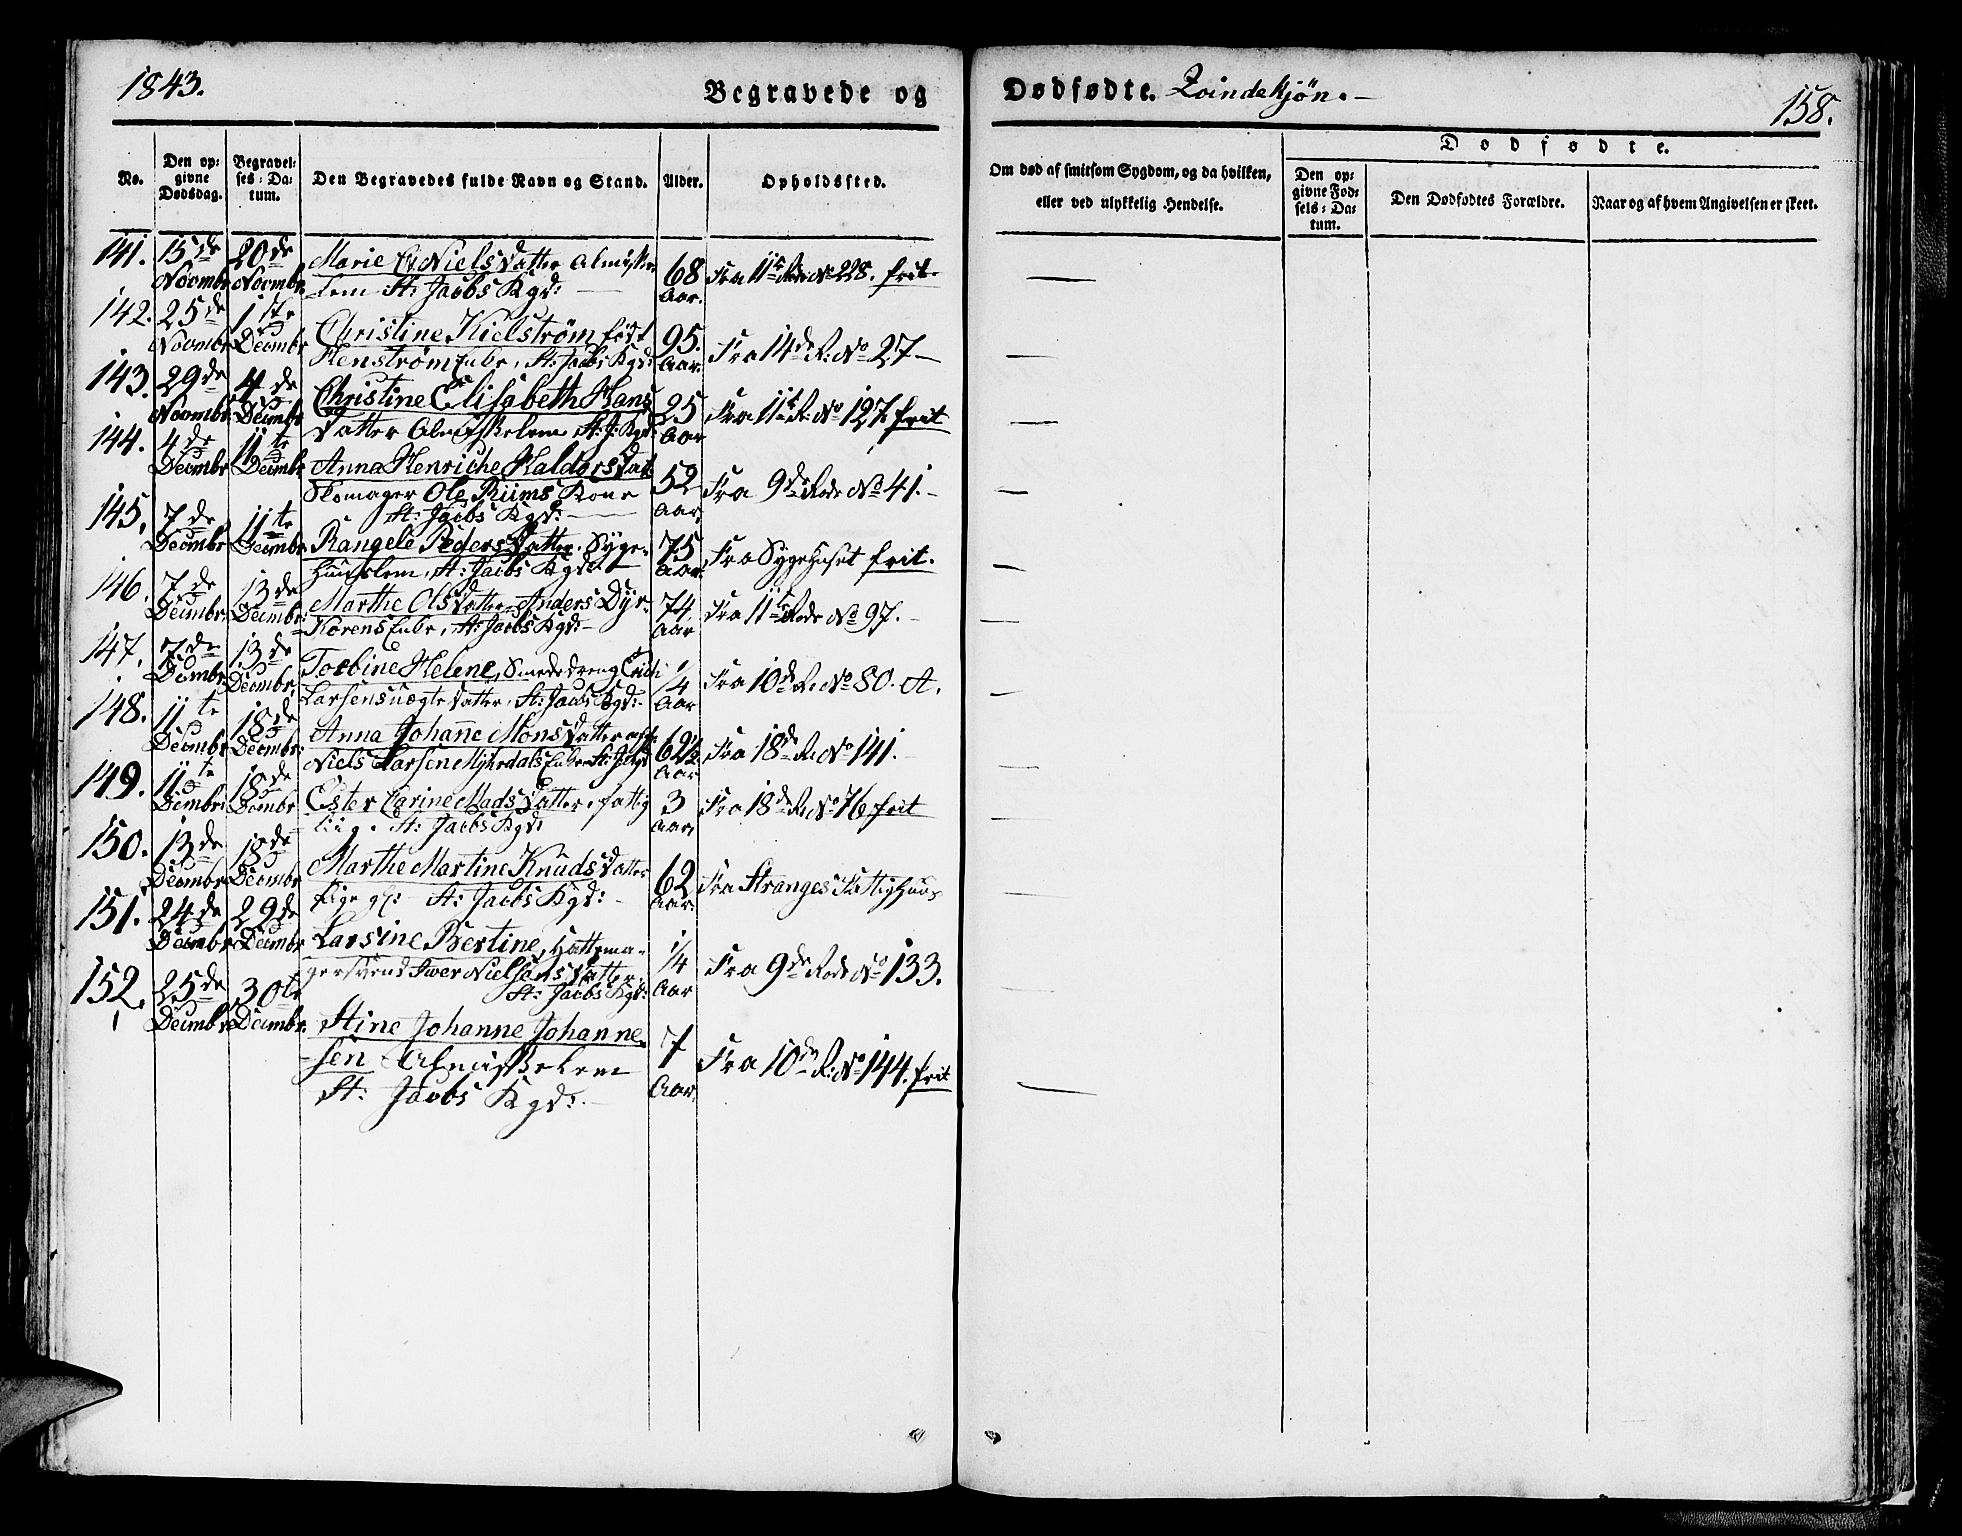 1843.
Begravede og
Dødfødte. Qvindekjøn.
158.
No.
Den opgivne Dødsdag.
Begravelses-Datum.
Den Begravedes fulde Navn og Stand.
Alder.
Opholdssted.
Om død af smitsom Sygdom, og da hvilken, eller ved ulykkelig Hendelse.
Dødfødte.
Den opgivne Fødselsdatum.
Den Dødfødtes Forældre.
Naar og af hvem Angivelsen er skeet.
141. 15de Novembr 20de Novembr Marie Nielsdatter Almisse
lem St: Jacobs Kgd: 68 Aar. Fra 11te Rode No 228. frit.
142. 25de Novembr 1ste Decembr Christine Kielström, født
Henström Enke, St: Jacobs Kgd: 95. Aar. Fra 14de R: No 27
143. 29de Novembr 4de Decembr Christine Elisabeth Hans
datter Almisselem St: J: Kgd: 25 Aar Fra 11te R: No 127. frit
144. 4de Decembr 11te Decembr Anna Henriche Haldorsdat
Skomager Ole Riims Kone
St: Jacobs Kgd: 52 Aar. Fra 9de Rode No 41.
145. 7de Decembr 11te Decembr Rangele Pedersdatter, Syge-
huuslem, St: Jacobs Kgd: 75 Aar. Fra Sygehuset frit.
146. 7de Decembr 13de Decembr: Marthe Olsdatter, Anders Dyr-
Korens Enke, St: Jacobs Kgd: 74 Aar Fra 11te Rode No 97.
147. 7de Decmbr 13de Decembr: Torbine Helene, Smededreng
Larsens uægte datter, St: Jacobs Kgd: 1/4 Aar Fra 10de R. No 80. A.
148. 11te Decembr 18de Decembr: Anna Johanne Monsdatter
Niels Larsen Myhrdals Enke St: J: Kgd 62½ Aar Fra 18de R. No 141.
149. 11te Decembr 18de Decembr Ester Carine Madsdatter, fattig
lig. St: Jacobs Kgd: 3 Aar, Fra 18de R. No 76 frit
150. 13de Decembr 18de Decembr Marthe Martine Knudsdatter
Pige gl: St: Jacobs Kgd: 62 Aar. Fra Stranges Fattighuus
151. 24de Decembr 29de Decembr Larsine Bertine, Hattema-
gersvend Iwer Nielsens datter
St: Jacobs Kgd: 1/4 Aar Fra 9de Rode No 133.
152. 25de Decembr 30te Decembr. Stine Johanne Johanne-
sen Almisselem
St: Jacobs Kgd: 7 Aar. Fra 10de R: No 144. frit